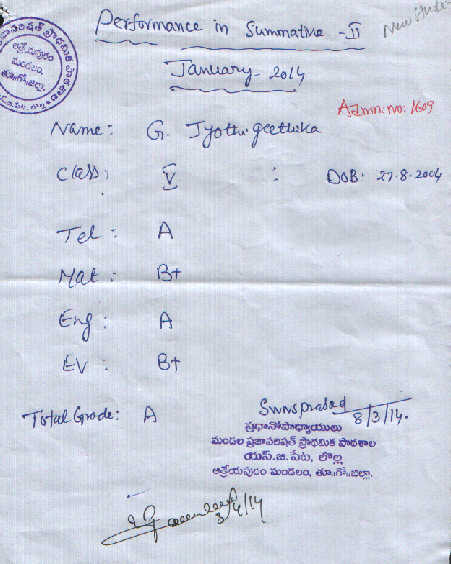 Performance in Summative - II
January - 2014
Admn. no: 1609
Name: G. Jyothi geethika
Class: V : DOB: 27-8-2004
Tel: A
Mat: B+
Eng: A
EV: B+
Total Grade: A
8/3/14.
ప్రధానోపాధ్యాయులు
మండల ప్రజాపరిషత్ ప్రాథమిక పాఠశాల
యస్.బి. పేట, లొల్ల
ఆత్రేయపురం మండలం, తూ.గో.జిల్లా.
3/4/14